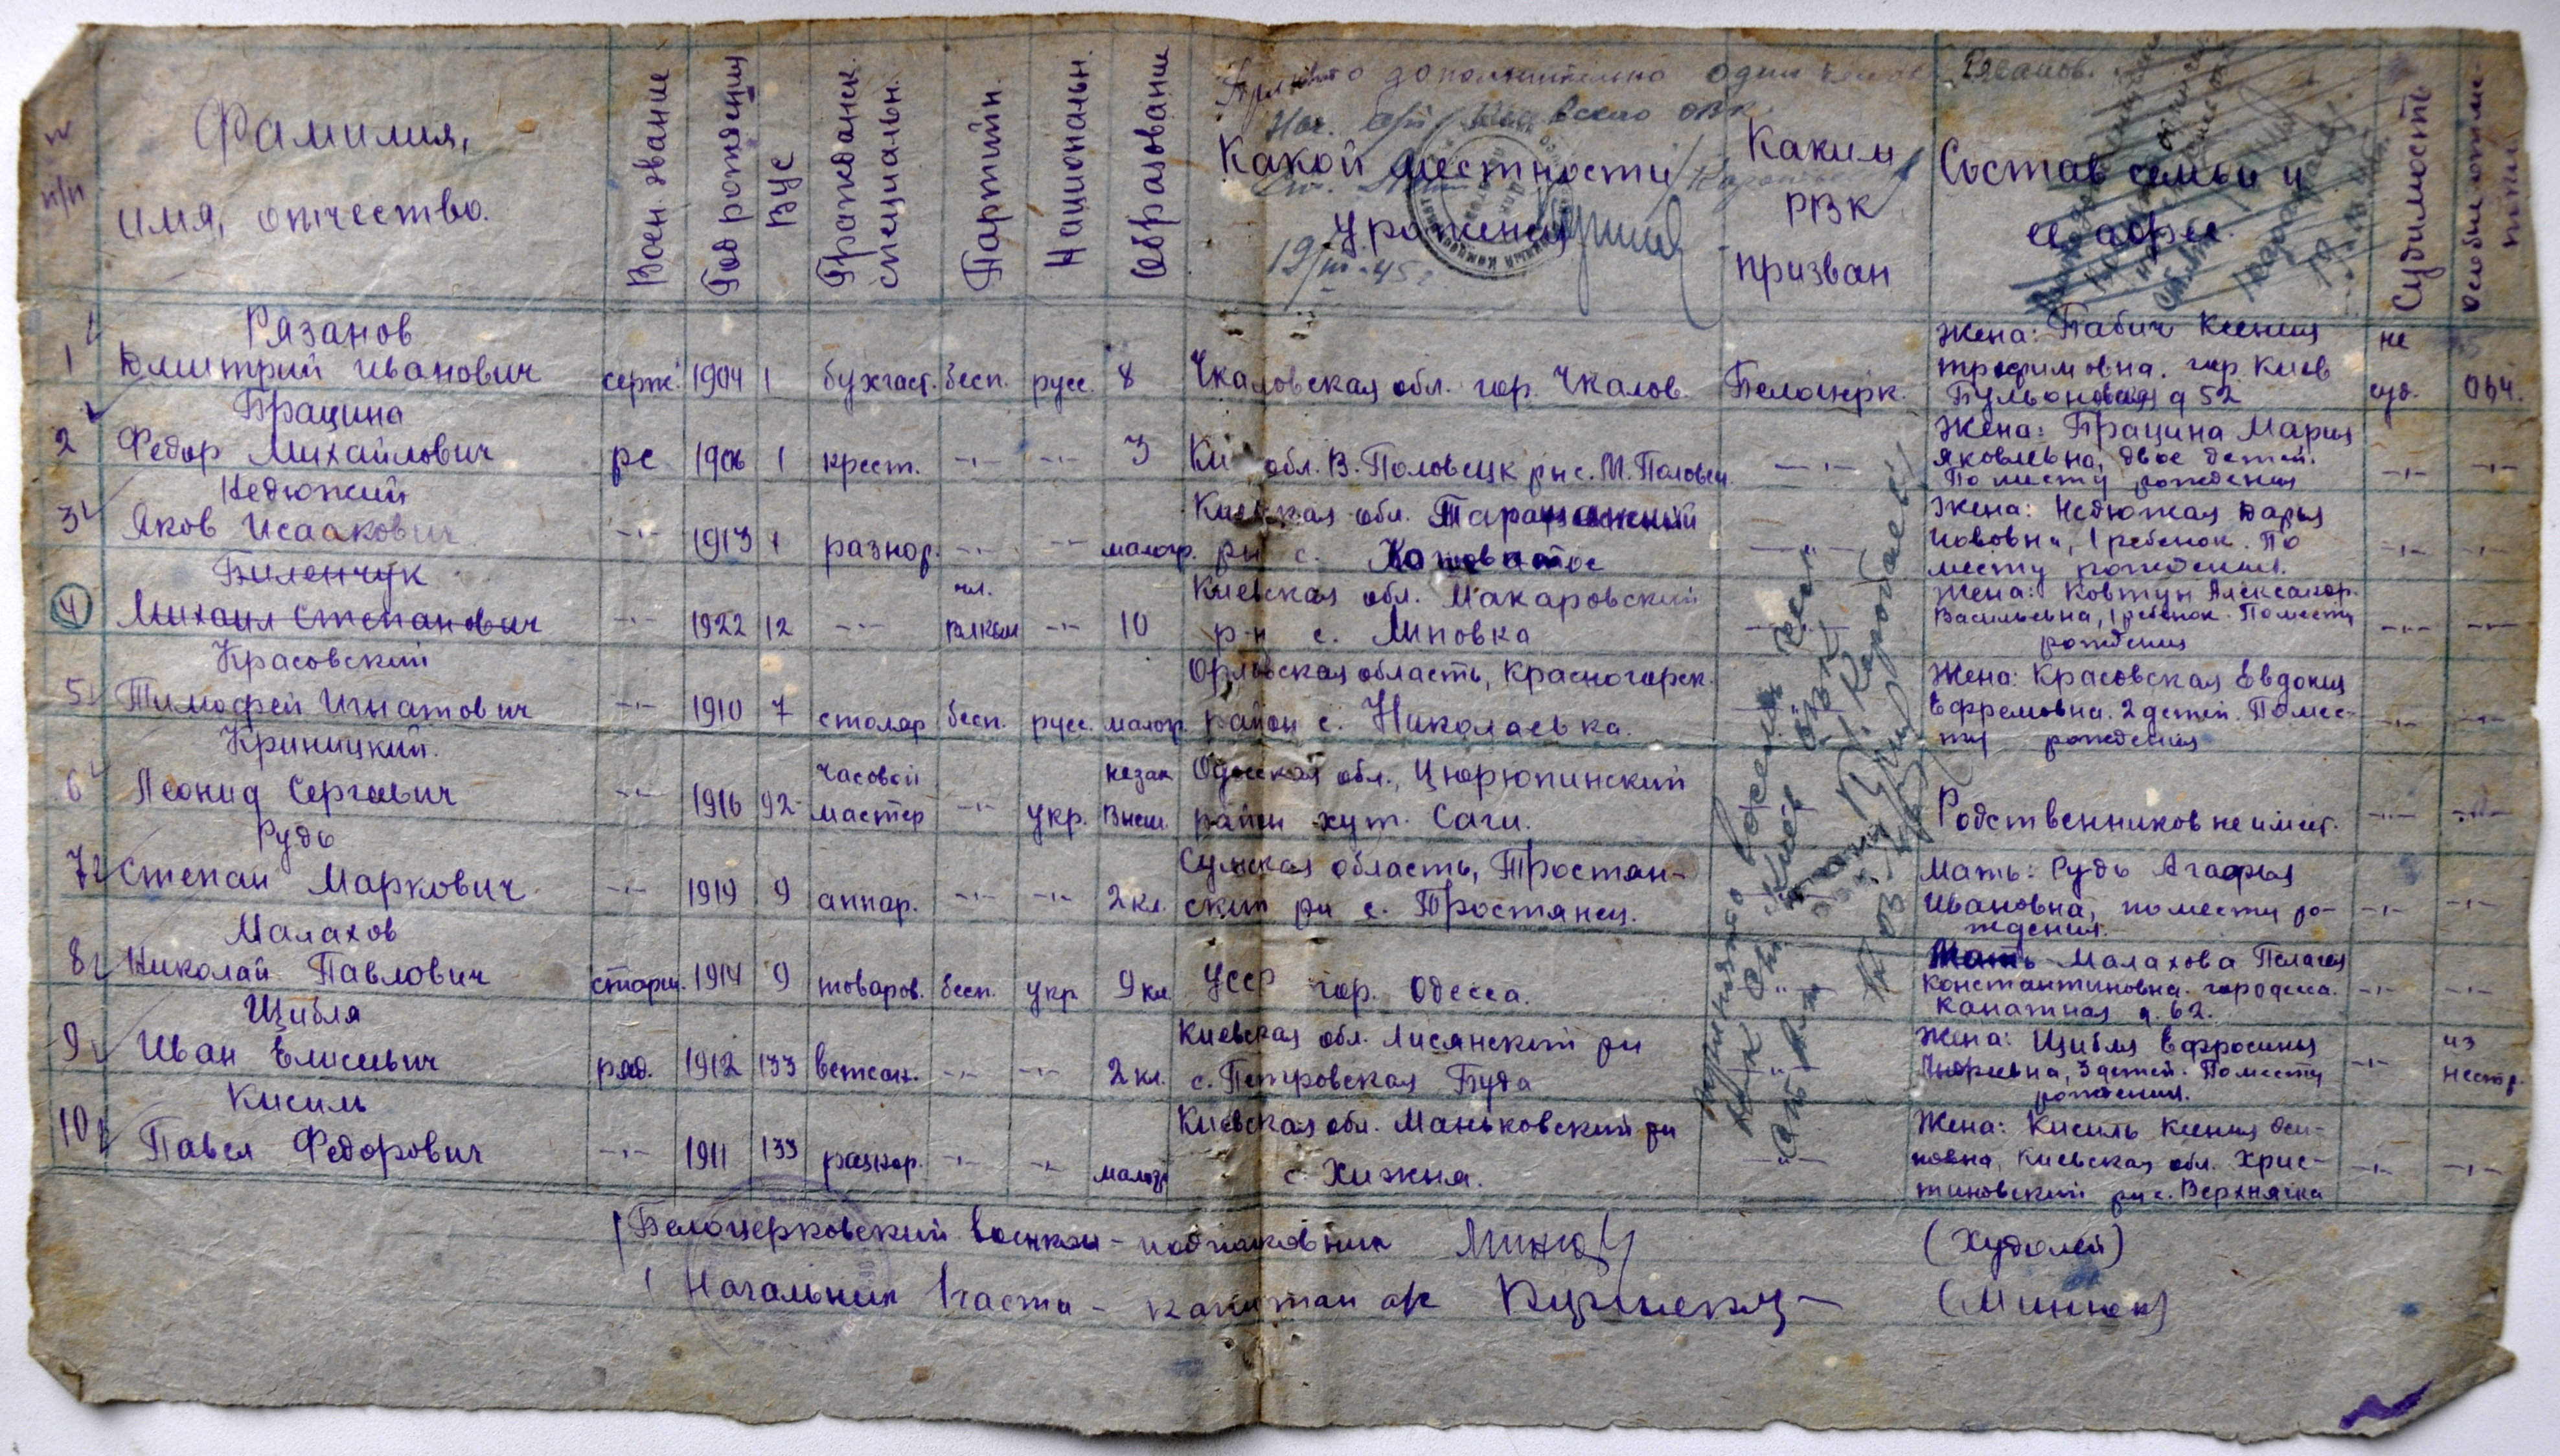 Принято дополнительно один Рязанов.
Нач.
19/III-45г.
№ п/п
Фамилия,
имя, отчество.
Воен. звание
Год рождения
ВУС
Гражданск. специальн.
Партийн.
Национальн.
Образование
Какой местности
уроженец
Каким
РВК
призван
Состав семьи и
и адрес.
Судимость
Особые отме-
тки
Рязанов
1 Дмитрий Иванович серж. 1904 1 бухгалт. бесп. русс. 8 Чкаловская обл. гор. Чкалов. Белоцерк.
Жена: Бабич Ксения
Трофимовна. гор. Киев
Бульоновская д 52
не
суд.
Брацина
2 Федор Михайлович рс 1906 1 крест. -"- -"- 3 Ки обл. В. Половецк рн с. М. Половец. -"-
Жена: Брацина Мария
Яковлевна, двое детей.
По месту рождения
-"- -"-
Недюжий
3 Яков Исаакович -"- 1913 1 разнор. -"- -"- малогр.
Киевская обл. Таращанский
рн с. Ковшоватое -"-
Жена: Недюжая Дарья
Иововна, 1 ребенок. По
месту рождения.
-"- -"-
Биленчук
4 Михаил Степанович -"- 1922 12 -"- чл. ВЛКСМ -"- 10
Киевская обл. Макаровский
р-н с. Липовка
Жена: Ковтун Александр.
Васильевна, 1 ребенок. По месту
рождения
-"- -"-
Красовский
5 Тимофей Игнатович -"- 1910 7 столяр бесп. русс. малогр.
Орловская область, Красногорск.
район с. Николаевка.
Жена: Красовская Евдокия
Ефремовна. 2 детей. По мес-
ту рождения
-"- -"-
Криницкий.
6 Леонид Сергеевич -"- 1916 92 часовой мастер -"- укр. незак Высш.
Одесская обл., Цюрюпинский
район хут. Саги.
Родственников не имеет.
-"- -"-
Рудь
7 Степан Маркович -"- 1919 9 аппар. -"- -"- 2 кл.
Сумская область, Тростян-
ский рн с. Тростянец.
Мать: Рудь Агафья
Ивановна, по месту ро-
ждения.
-"- -"-
Малахов
8 Николай Павлович старш. 1914 9 товаров. бесп. укр 9 кл. УССР гор. Одесса.
Мать Малахова Пелагея
Константиновна. гор Одесса.
Канатная д. 62.
-"- -"-
Щибля
9 Иван Елисеевич ряд. 1912 133 ветсан. -"- -"- 2 кл.
Киевская обл. Лисянский рн
с. Петровская Буда
Жена: Щибля Ефросинья
Андреевна, 3 детей. По месту
рождения.
-"- из
нестр.
Кисиль
10 Павел Федорович -"- 1911 133 разнор. -"- -"- малогр
Киевская обл. Маньковский рн
с. Хижня.
Жена: Кисиль Ксения Оси-
повна, Киевская обл. Хрис-
тиновский рн с. Верхнячка
-"- -"-
Белоцерковский военком - подполковник (Худолей)
Начальник 1 части - капитан а/с (Минюк)